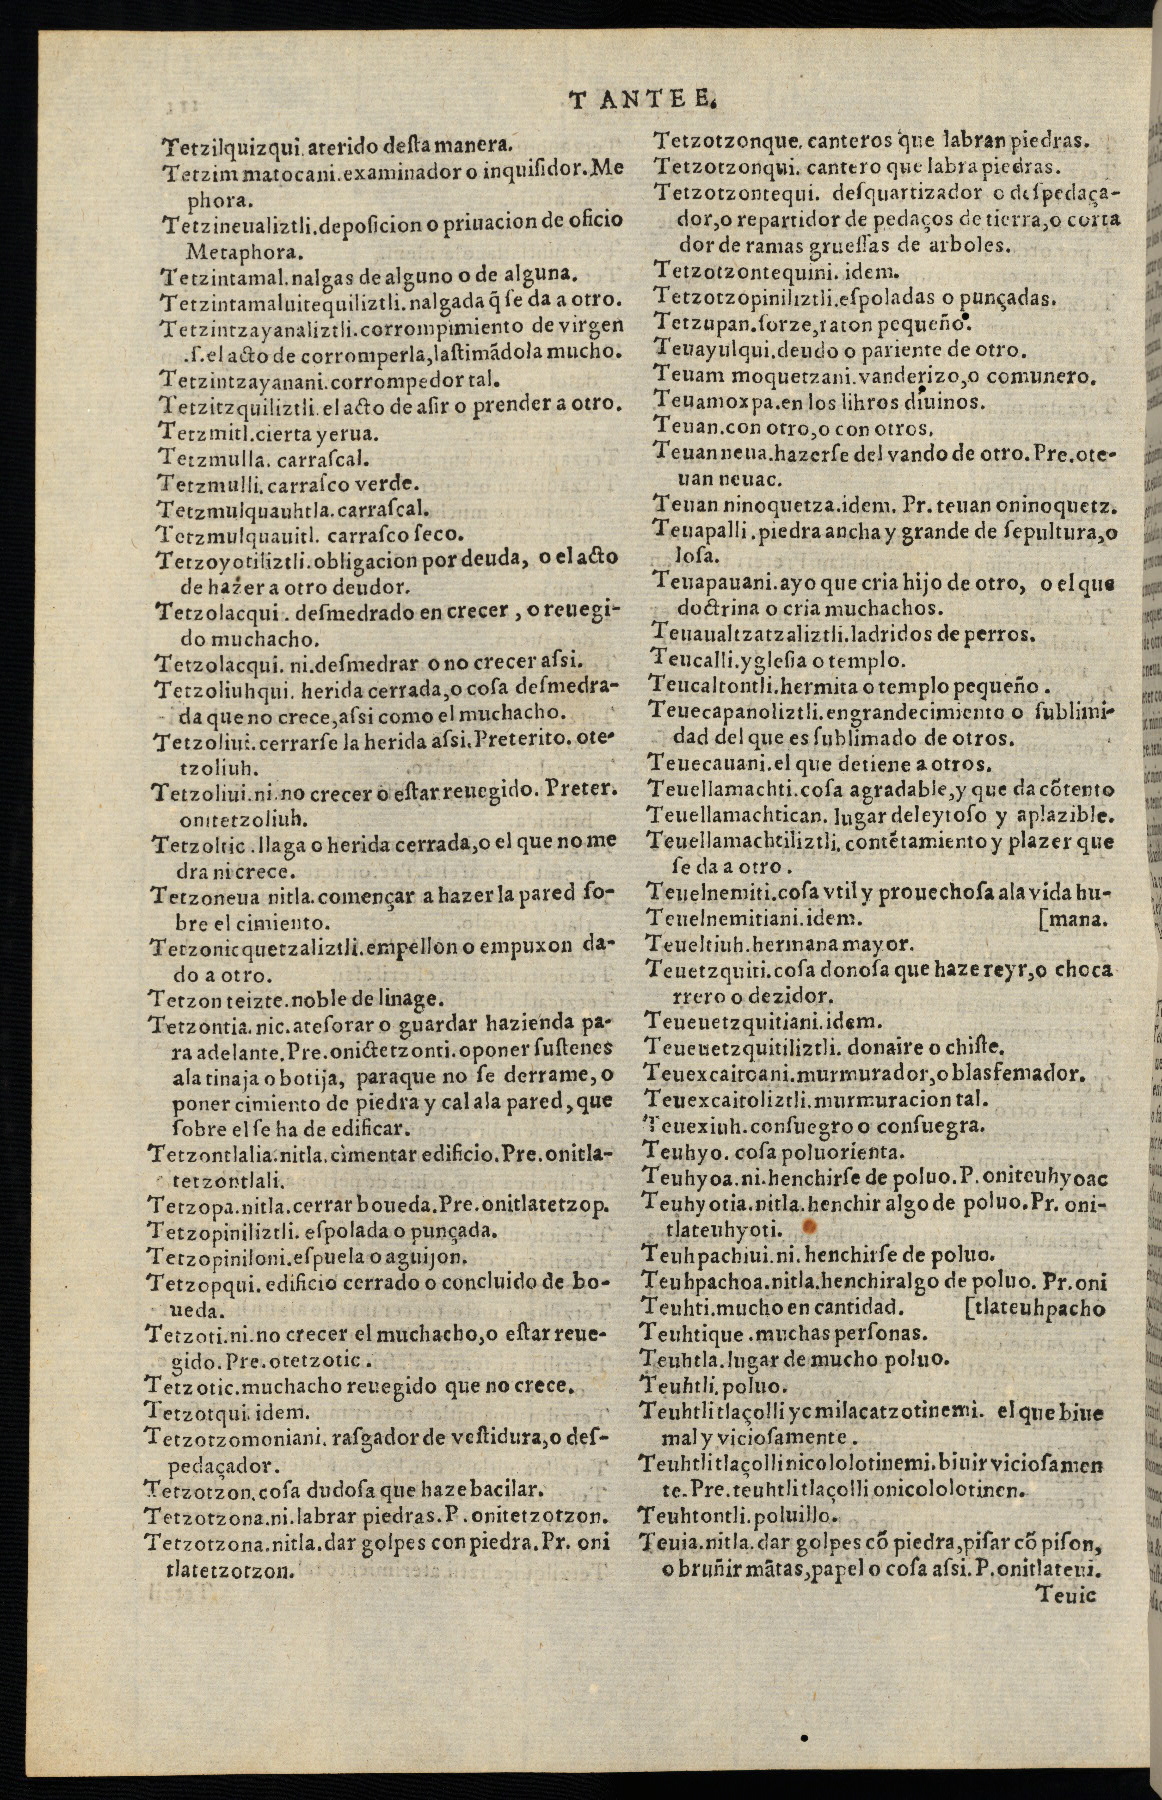 T ANTE E.
Tetzilquizqui. aterido desta manera.
Tetzimmatocani. examinador o inquisidor. Me
phora.
Tetzineualiztli. deposicion o priuacion de oficio
Metaphora.
Tetzintamal. nalgas de alguno o de alguna.
Tetzintamaluitequiliztli. nalgada q̃ se da a otro.
Tetzintzayanaliztli. corrompimiento de virgen
.s. el acto de corromperla, lastimãdola mucho.
Tetzintzayanani. corrompedor tal.
Tetzitzquiliztli. el acto de asir o prender a otro.
Tetzmitl. cierta yerua.
Tetzmulla. carrascal.
Tetzmulli. carrasco verde.
Tetzmulquauhtla. carrascal.
Tetzmulquauitl. carrasco seco.
Tetzoyotiliztli. obligacion por deuda, o el acto
de hazer a otro deudor.
Tetzolacqui. desmedrado en crecer, o reuegi-
do muchacho.
Tetzolacqui. ni. desmedrar o no crecer assi.
Tetzoliuhqui. herida cerrada, o cosa desmedra-
da que no crece, assi como el muchacho.
Tetzoliui. cerrarse la herida assi. Preterito. ote-
tzoliuh.
Tetzoliui. ni. no crecer o estar reuegido. Preter.
onitetzoliuh.
Tetzoltic. llaga o herida cerrada, o el que no me
dra ni crece.
Tetzoneua nitla. començar a hazer la pared so-
bre el cimiento.
Tetzonicquetzaliztli. empellon o empuxon da-
do a otro.
Tetzon teizte. noble de linage.
Tetzontia. nic. atesorar o guardar hazienda pa-
ra adelante. Pre. onictetzonti. o poner sustenes
ala tinaja o botija, paraque no se derrame, o
poner cimiento de piedra y cal ala pared, que
sobre el se ha de edificar.
Tetzontlalia. nitla. cimentar edificio. Pre. onitla-
tetzontlali.
Tetzopa. nitla. cerrar boueda. Pre. onitlatetzop.
Tetzopiniliztli. espolada o punçada.
Tetzopiniloni. espuela o aguijon.
Tetzopqui. edificio cerrado o concluido de bo-
ueda.
Tetzoti. ni. no crecer el muchacho, o estar reue-
gido. Pre. otetzotic.
Tetzotic. muchacho reuegido que no crece.
Tetzotqui. idem.
Tetzotzomoniani. rasgador de vestidura, o des-
pedaçador.
Tetzotzon. cosa dudosa que haze bacilar.
Tetzotzona. ni. labrar piedras. P. onitetzotzon.
Tetzotzona. nitla. dar golpes con piedra. Pr. oni
tlatetzotzon.
Tetzotzonque. canteros que labran piedras.
Tetzotzonqui. cantero que labra piedras.
Tetzotzontequi. desquartizador o despedaça-
dor, o repartidor de pedaços de tierra, o corta
dor de ramas gruessas de arboles.
Tetzotzontequini. idem.
Tetzotzopiniliztli. espoladas o punçadas.
Tetzupan. sorze, raton pequeño.
Teuayulqui. deudo o pariente de otro.
Teuam moquetzani. vanderizo, o comunero.
Teuamoxpa. en los libros diuinos.
Teuan. con otro, o con otros.
Teuanneua. hazerse del vando de otro. Pre. ote-
uan neuac.
Teuan ninoquetza. idem. Pr. teuan oninoquetz.
Teuapalli. piedra ancha y grande de sepultura, o
losa.
Teuapauani. ayo que cria hijo de otro, o el que
doctrina o cria muchachos.
Teuaualtzatzaliztli. ladridos de perros.
Teucalli. yglesia o templo.
Teucaltontli. hermita o templo pequeño.
Teuecapanoliztli. engrandecimiento o sublimi-
dad del que es sublimado de otros.
Teuecauani. el que detiene a otros.
Teuellamachti. cosa agradable, y que da cõtento
Teuellamachtican. lugar deleytoso y aplazible.
Teuellamachtiliztli. contẽtamiento y plazer que
se da a otro.
Teuelnemiti. cosa vtil y prouechosa ala vida hu-
Teuelnemitiani. idem. [mana.
Teueltiuh. hermana mayor.
Teuetzquiti. cosa donosa que haze reyr, o choca
rrero o dezidor.
Teueuetzquitiani. idem.
Teueuetzquitiliztli. donaire o chiste.
Teuexcaitoani. murmurador, o blasfemador.
Teuexcaitoliztli. murmuracion tal.
Teuexiuh. consuegro o consuegra.
Teuhyo. cosa poluorienta.
Teuhyoa. ni. henchirse de poluo. P. oniteuhyoac
Teuhyotia. nitla. henchir algo de poluo. Pr. oni-
tlateuhyoti.
Teuhpachiui. ni. henchirse de poluo.
Teuhpachoa. nitla. henchir algo de poluo. Pr. oni
Teuhti. mucho en cantidad. [tlateuhpacho
Teuhtique. muchas personas.
Teuhtla. lugar de mucho poluo.
Teuhtli. poluo.
Teuhtli tlaçolli yc milacatzotinemi. el que biue
mal y viciosamente.
Teuhtli tlaçolli nicololotinemi. biuir viciosamen
te. Pre. teuhtli tlaçolli onicololotinen.
Teuhtontli. poluillo.
Teuia. nitla. dar golpes cõ piedra, pisar cõ pison,
o bruñir mãtas, papel o cosa assi. P. onitlateui.
Teuic